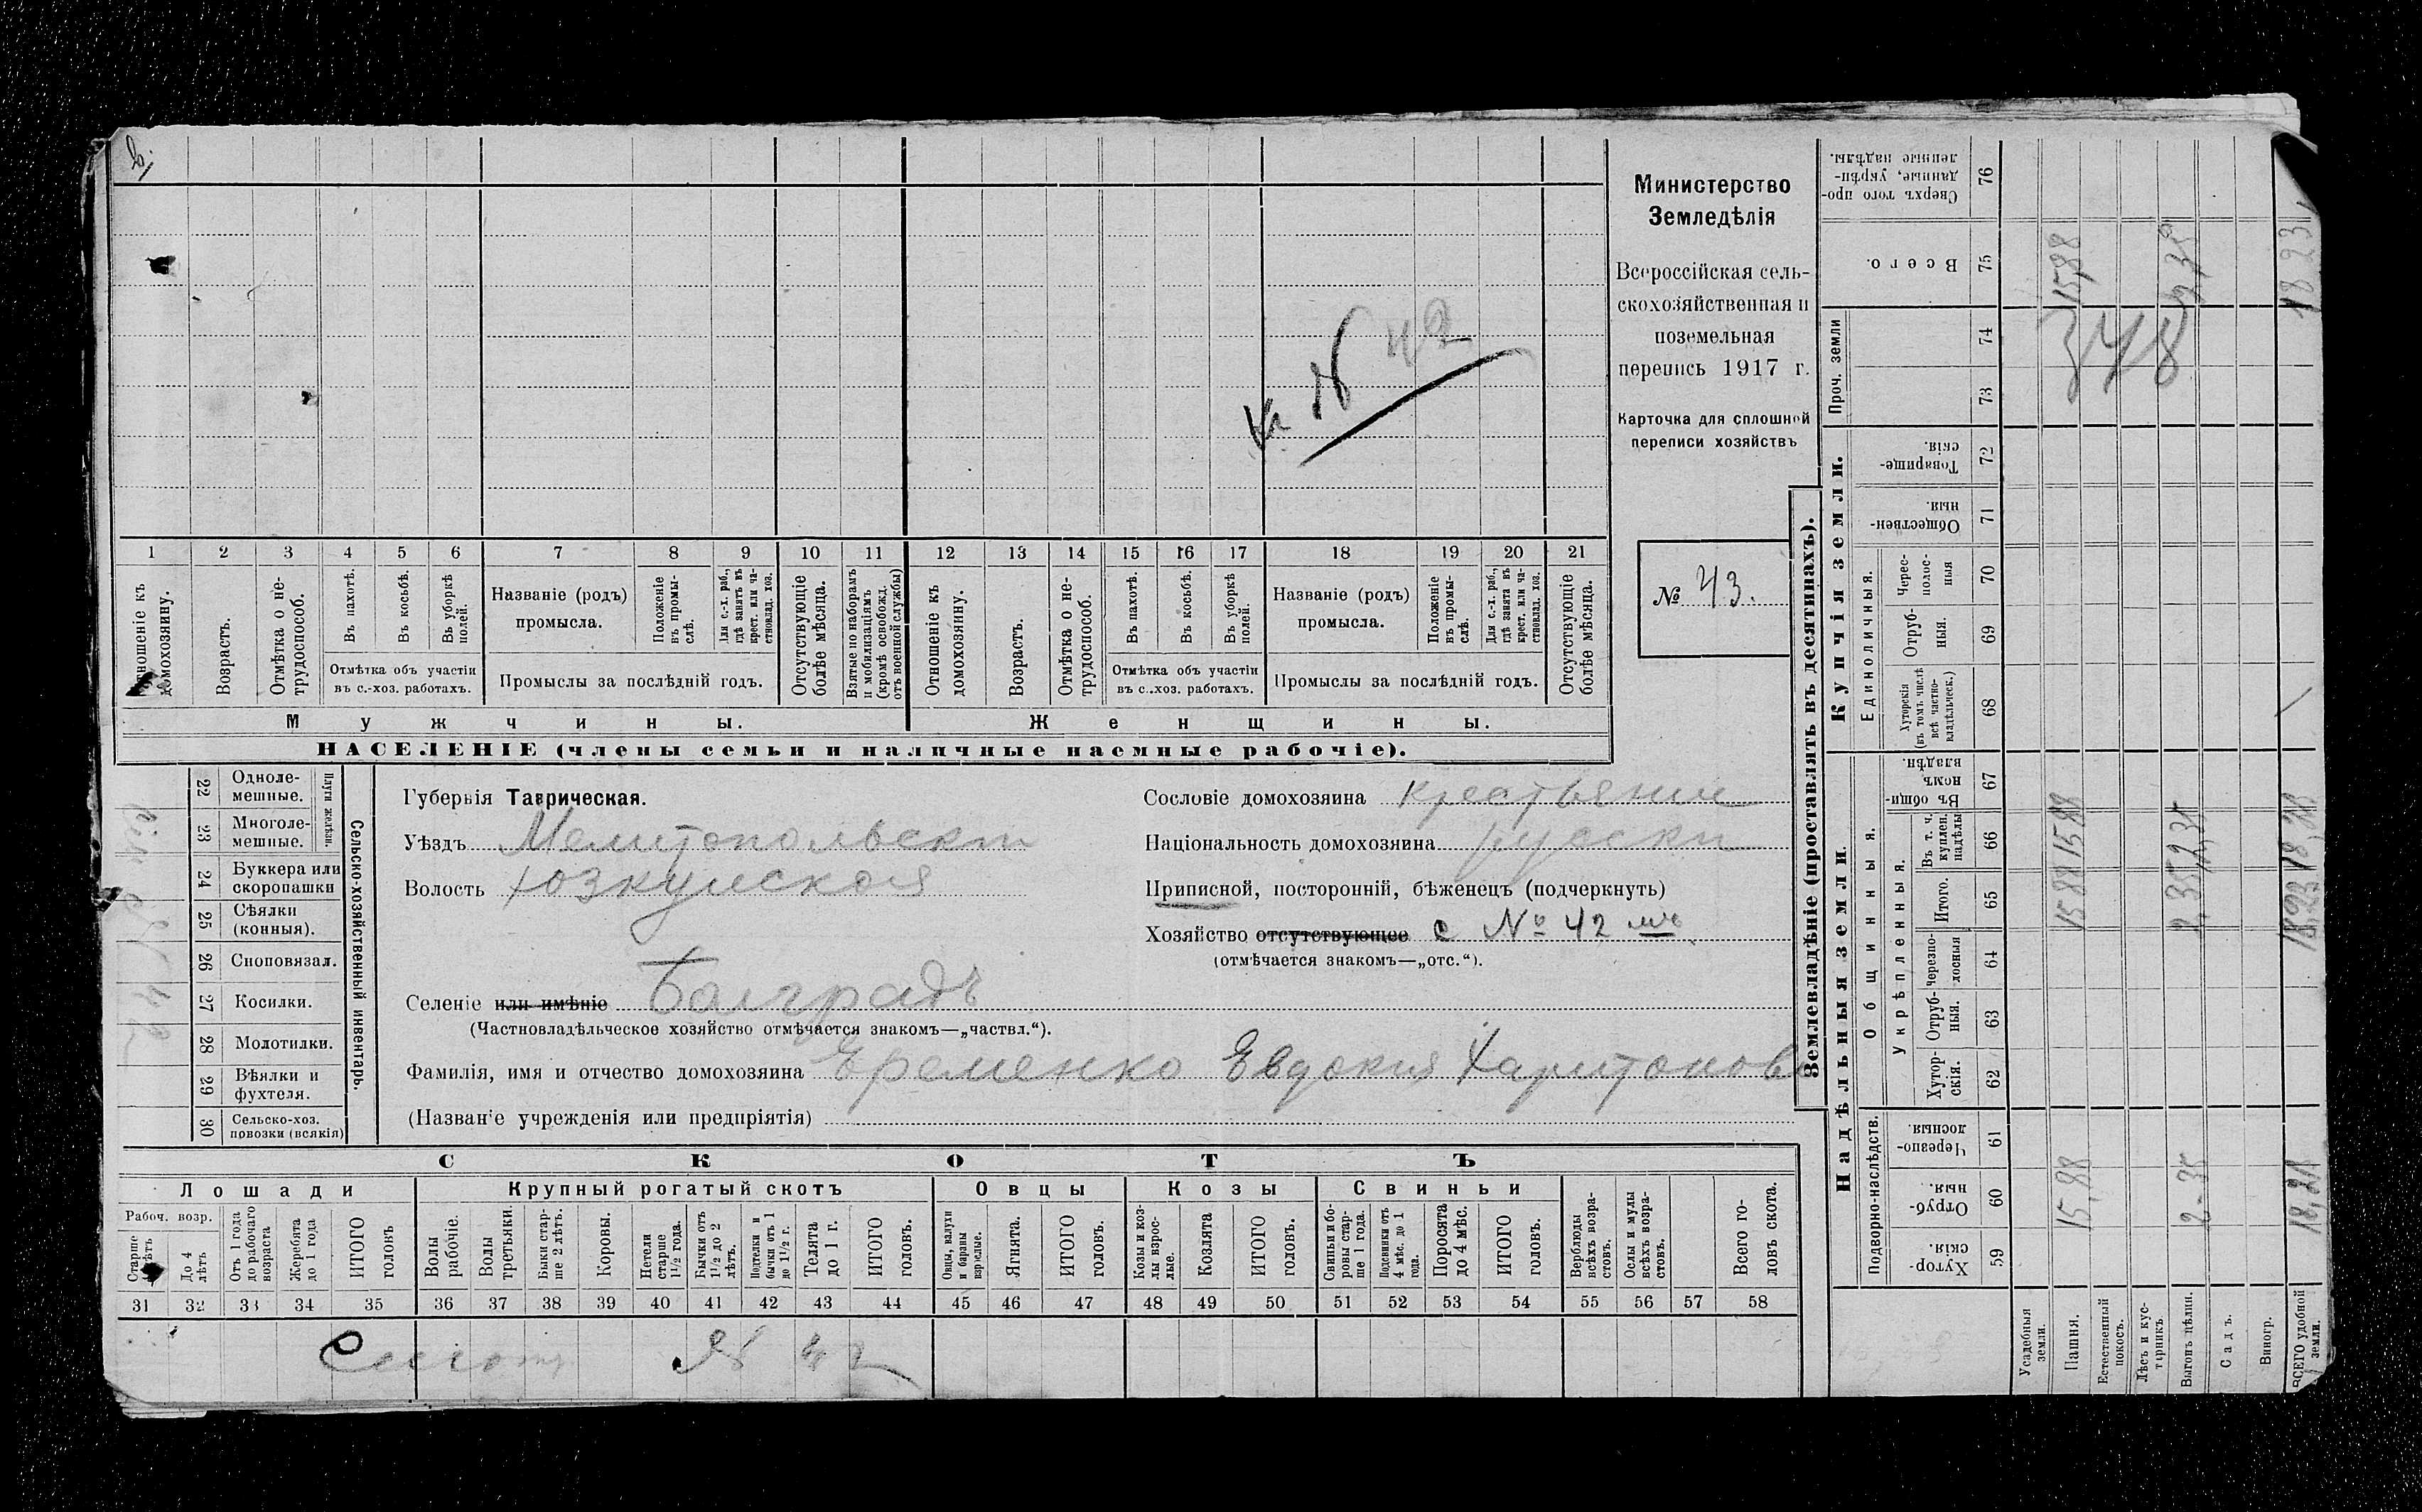 Министерство
Земледѣлія
Всероссійская сель-
скохозяйственная и
поземельная
перепись 1917 г.
Карточка для сплошной
переписи хозяйствъ
№ 43.
№ 42
1 2 3 4 5 6 7 8 9 10 11 12 13 14 15 16 17 18 19 20 21
Отношеніе къ домохозяину.
Возрастъ.
Отмѣтка о не-трудоспособ.
Въ пахотѣ.
Въ косьбѣ.
Въ уборкѣ полей.
Отмѣтка объ участіи
въ с.-хоз. работахъ.
Названіе (родъ)
промысла.
Положеніе въ промы-слѣ.
Для с.-х. раб., гдѣ занятъ въ крест. или ча-стновлад. хоз.
Промыслы за послѣдній годъ.
Отсутствующіе болѣе мѣсяца.
Взятые по наборамъ и мобилизаціямъ (кромѣ освобожд. отъ военной службы)
Отношеніе къ домохозяину.
Возрастъ.
Отмѣтка о не-трудоспособ.
Въ пахотѣ.
Въ косьбѣ.
Въ уборкѣ полей.
Отмѣтка объ участіи
въ с.-хоз. работахъ.
Названіе (родъ)
промысла.
Положеніе въ промы-слѣ.
Для с.-х. раб., гдѣ занята въ крест. или ча-стновлад. хоз.
Промыслы за послѣдній годъ.
Отсутствующіе болѣе мѣсяца.
Мужчины.
Женщины.
НАСЕЛЕНІЕ (члены семьи и наличные наемные рабочіе).
22 Одноле-мешные.
23 Многоле-мешные.
Плуги желѣзн.
24 Буккера или скоропашки
25 Сѣялки (конныя).
26 Сноповязал.
27 Косилки.
28 Молотилки.
29 Вѣялки и фухтеля.
30 Сельско-хоз. повозки (всякія)
Сельско-хозяйственный инвентарь.
Губернія Таврическая.
Уѣздъ Мелитопольскій
Волость Юзкуйская
Селеніе или имѣніе Болградъ
(Частновладѣльческое хозяйство отмѣчается знакомъ—„частвл.“).
Фамилія, имя и отчество домохозяина Еременко Евдокия Харитонов
(Названіе учрежденія или предпріятія)
Сословіе домохозяина крестьянин
Національность домохозяина русски
Приписной, посторонній, бѣженецъ (подчеркнуть)
Хозяйство отсутствующее с № 42 мъ
(отмѣчается знакомъ—„отс.“).
СКОТЪ
Лошади
Крупный рогатый скотъ
Овцы
Козы
Свиньи
Рабоч. возр.
Старше 4 лѣтъ
До 4 лѣтъ
Отъ 1 года до рабочаго возраста
Жеребята до 1 года
ИТОГО головъ
Волы рабочіе.
Волы третьяки.
Быки стар-ше 2 лѣтъ.
Коровы.
Нетели старше 1½ года.
Бычки отъ 1½ до 2 лѣтъ.
Подтелки и бычки отъ 1 до 1½ г.
Телята до 1 г.
ИТОГО головъ.
Овцы, валухи и бараны взрослые.
Ягнята.
ИТОГО головъ.
Козы и коз-лы взрос-лые.
Козлята
ИТОГО головъ.
Свиньи и бо-ровы стар-ше 1 года.
Подсвинки отъ 4 мѣс. до 1 года.
Поросята до 4 мѣс.
ИТОГО головъ.
Верблюды всѣхъ возра-стовъ.
Ослы и мулы всѣхъ возра-стовъ.
Всего го-ловъ скота.
31 32 33 34 35 36 37 38 39 40 41 42 43 44 45 46 47 48 49 50 51 52 53 54 55 56 57 58
№ 42
Землевладѣніе (проставлять въ десятинахъ).
Надѣльныя земли.
Купчія земли.
Проч. земли
Подворно-наслѣдств.
Общинныя.
Укрѣпленныя.
Единоличныя.
Хутор-скія. 59
Отруб-ныя. 60
Черезпо-лосныя 61
Хутор-скія. 62
Отруб-ныя. 63
Черезпо-лосныя 64
Итого. 65
Въ т. ч. куплен. надѣлы 66
Въ общи-номъ владѣн. 67
Хуторскія (въ томъ числѣ всѣ частно-владѣльческ.) 68
Отруб-ныя. 69
Черес-полос-ныя 70
Обществен-ныя. 71
Товарище-скія. 72
73
74
Всего. 75
Сверхъ того про-данные, укрѣп-ленные надѣлы. 76
Усадебныя земли.
Пашня. 15,88 15,88 15,88 15,88
Естественный покосъ.
Лѣсъ и кус-тарникъ.
Выгонъ цѣлин. 2-35 2,35 2,35 2,35
Садъ.
Виногр.
ВСЕГО удобной земли. 18,23 18,23
348